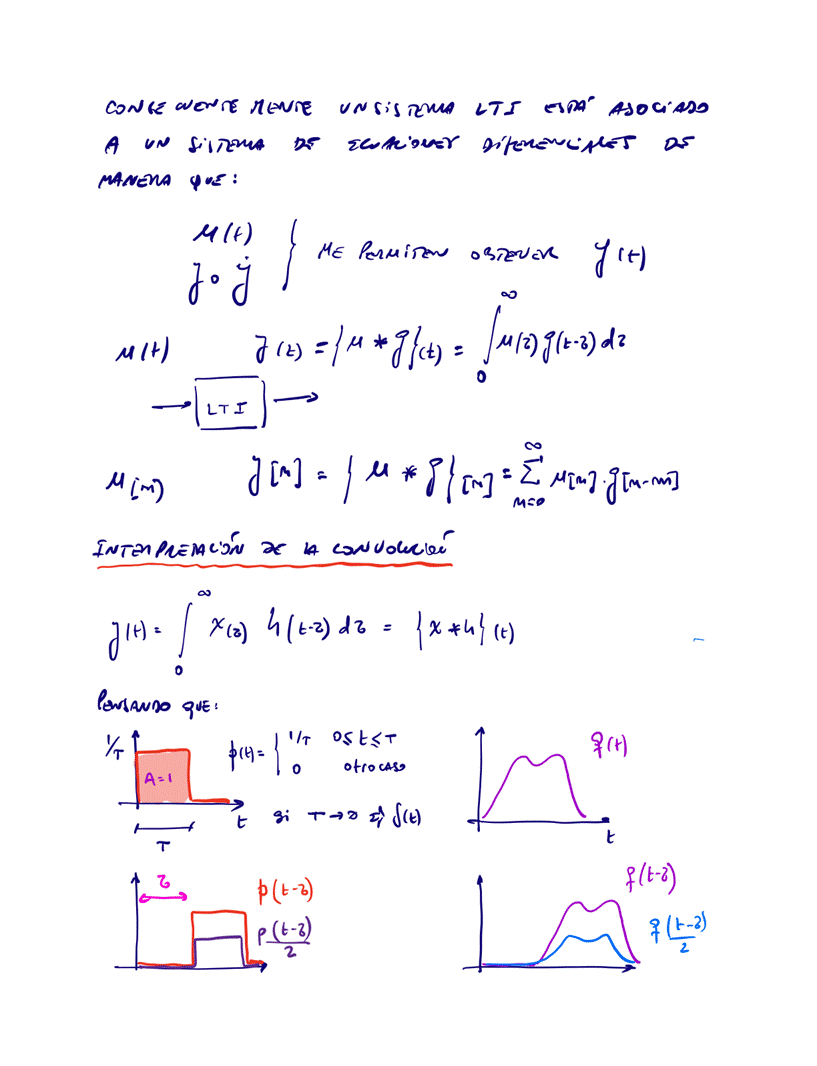 CONSECUENTEMENTE UN SISTEMA LTI ESTÁ ASOCIADO
A UN SISTEMA DE ECUACIONES DIFERENCIALES DE
MANERA QUE:
u(t)
y o ẏ } ME PERMITEN OBTENER y(t)
u(t) y(t) = {u * g}(t) = ∫₀^∞ u(τ) g(t-τ) dτ
LTI
u[n] y[n] = {u * g}[n] = Σ_{m=0}^∞ u[m] · g[n-m]
INTERPRETACIÓN DE LA CONVOLUCIÓN
y(t) = ∫₀^∞ x(τ) h(t-τ) dτ = {x * h}(t)
PENSANDO QUE:
1/T A=1 t T
p(t) = { 1/T 0 ≤ t ≤ T
0 otro caso
si T → 0 es δ(t)
g(t) t
τ p(t-τ)
p(t-τ)/2
g(t-τ)
g(t-τ)/2